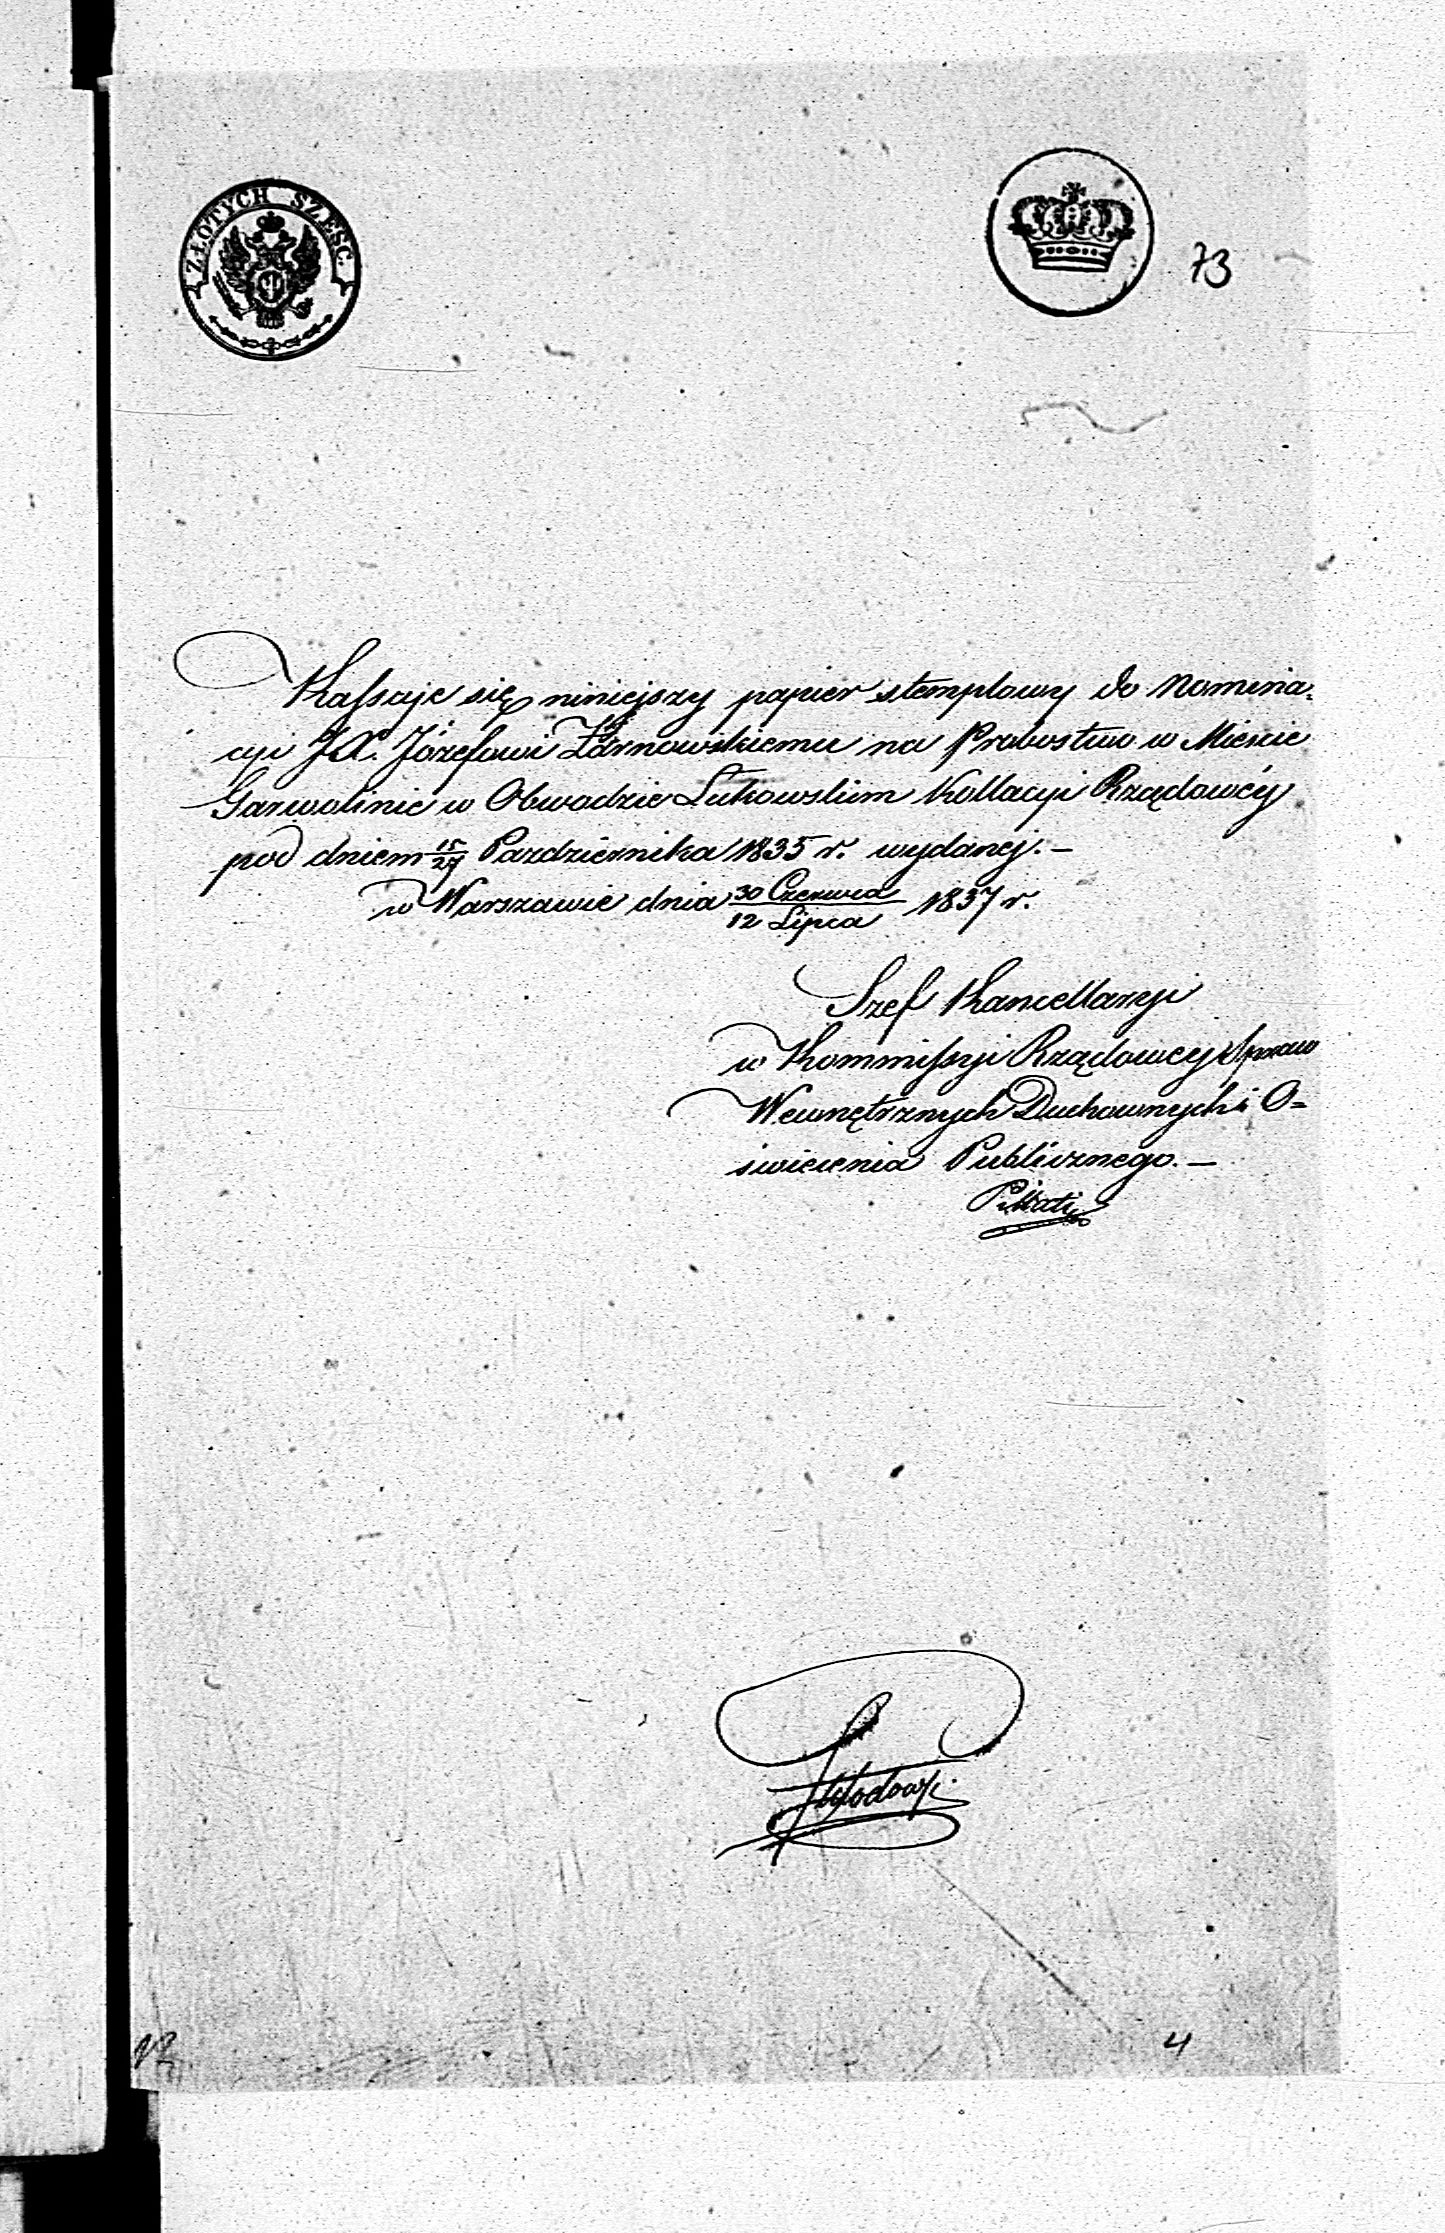 ZŁOTYCH SZEŚĆ.
73
Kassuje się niniejszy papier stemplowy do Nomina-
cyi JX. Józefowi Żarnowskiemu na Probostwo w Mieście
Garwolinie w Obwodzie Łukowskim Kollacyi Rządowéy
pod dniem 15/27 Pazdziernika 1835 r. wydanej. –
w Warszawie dnia 30 Czerwca / 12 Lipca 1837 r.
Szef Kancellaryi
w Kommissyi Rządowey Spraw
Wewnętrznych Duchownych i O=
świecenia Publicznego. –
4